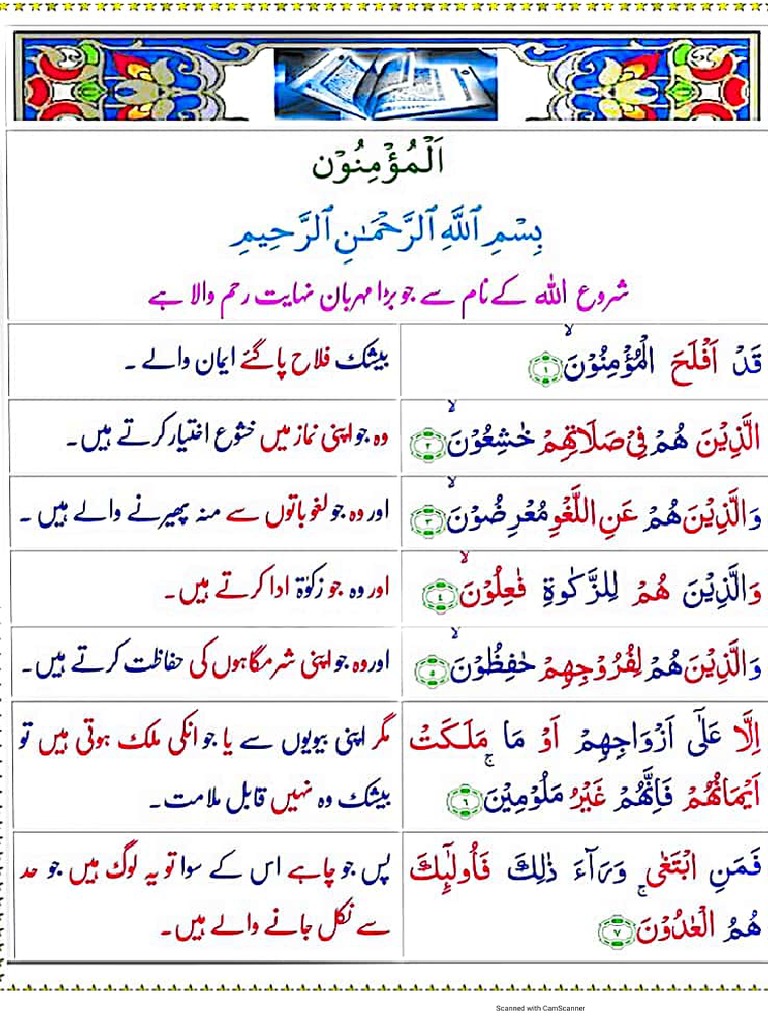 اَلْمُؤْمِنُوْن
بِسْمِ ٱللَّهِ ٱلرَّحْمَـٰنِ ٱلرَّحِيمِ
شروع اللہ کے نام سے جو بڑا مہربان نہایت رحم والا ہے
قَدْ اَفْلَحَ الْمُؤْمِنُوْنَ ۙ ١
بیشک فلاح پاگئے ایمان والے ۔
الَّذِيْنَ هُمْ فِيْ صَلَاتِهِمْ خٰشِعُوْنَ ۙ ٢
وہ جو اپنی نماز میں خشوع اختیار کرتے ہیں۔
وَالَّذِيْنَ هُمْ عَنِ اللَّغْوِ مُعْرِضُوْنَ ۙ ٣
اور وہ جو لغو باتوں سے منہ پھیرنے والے ہیں ۔
وَالَّذِيْنَ هُمْ لِلزَّكٰوةِ فٰعِلُوْنَ ۙ ٤
اور وہ جو زکوٰۃ ادا کرتے ہیں۔
وَالَّذِيْنَ هُمْ لِفُرُوْجِهِمْ حٰفِظُوْنَ ۙ ٥
اور وہ جو اپنی شرمگاہوں کی حفاظت کرتے ہیں۔
اِلَّا عَلٰٓى اَزْوَاجِهِمْ اَوْ مَا مَلَكَتْ
اَيْمَانُهُمْ فَاِنَّهُمْ غَيْرُ مَلُوْمِيْنَ ۚ ٦
مگر اپنی بیویوں سے یا جو انکی ملک ہوتی ہیں تو
بیشک وہ نہیں قابل ملامت۔
فَمَنِ ابْتَغٰى وَرَآءَ ذٰلِكَ فَاُولٰٓئِكَ
هُمُ الْعٰدُوْنَ ۚ ٧
پس جو چاہے اس کے سوا تو یہ لوگ ہیں جو حد
سے نکل جانے والے ہیں۔
Scanned with CamScanner